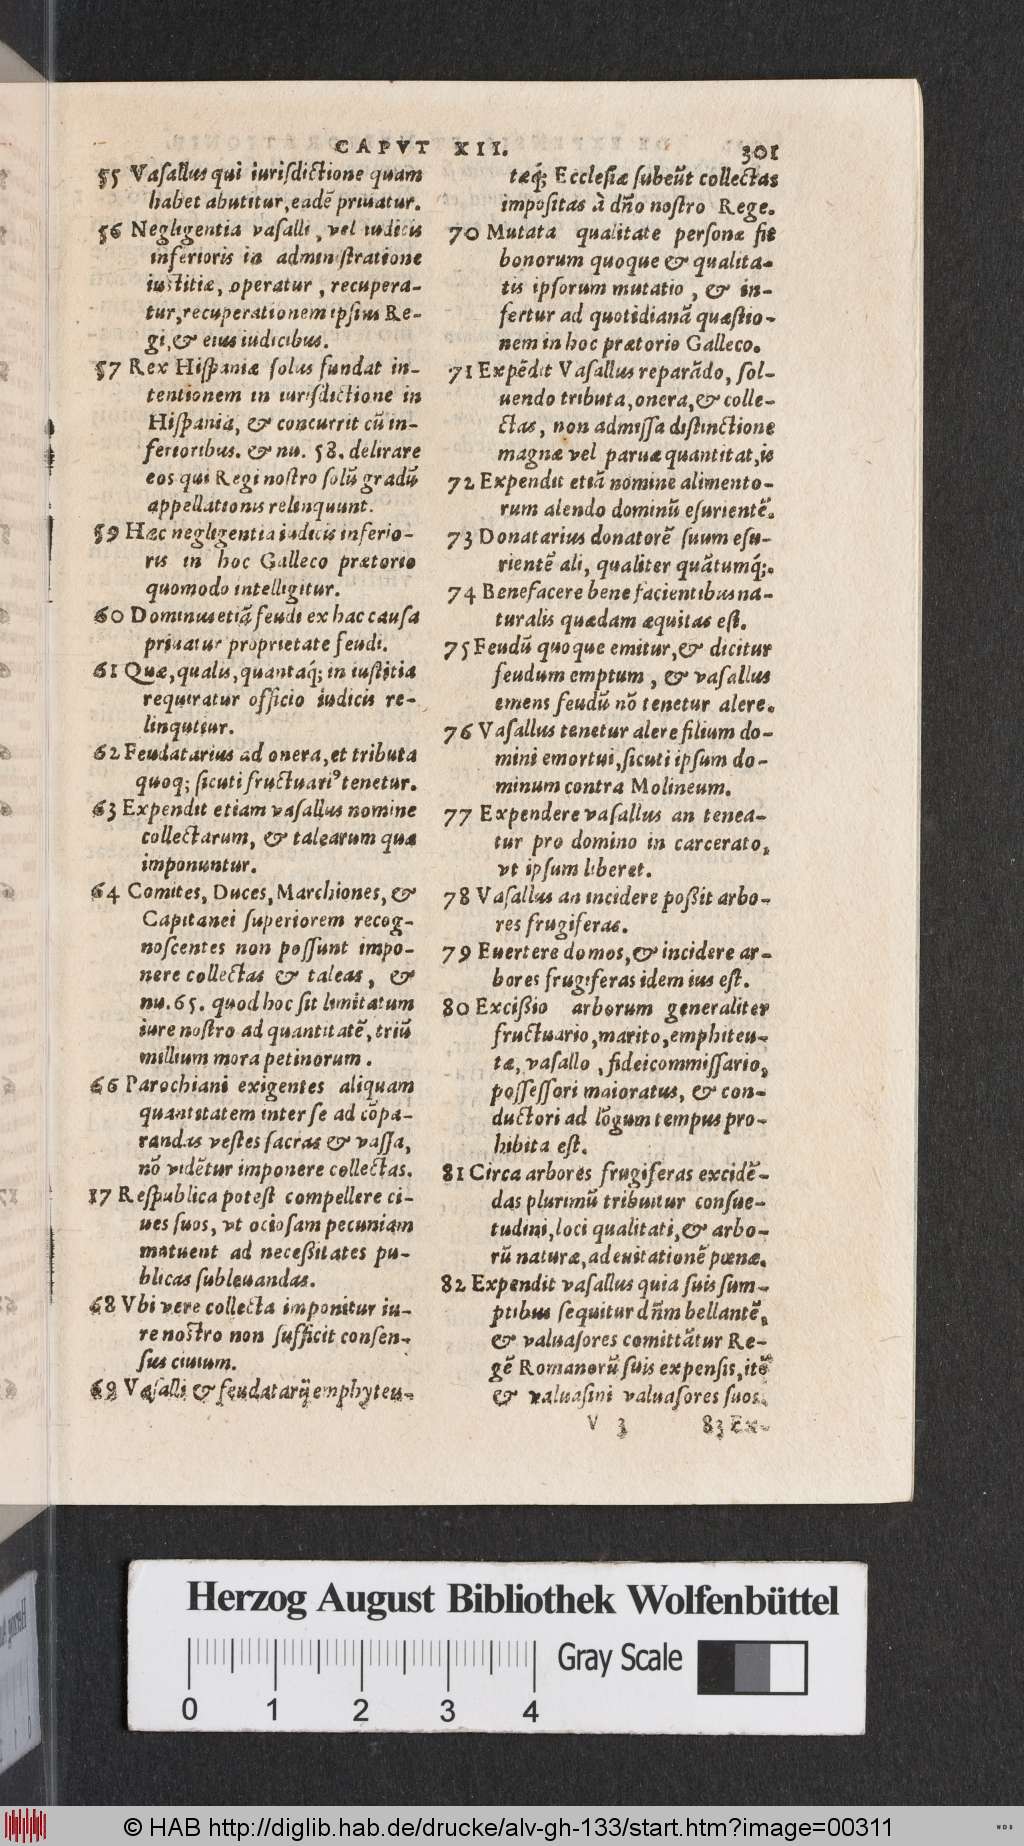 CAPVT XII. 301
55 Vasallus qui iurisdictione quam
habet abutitur, eadē priuatur.
56 Negligentia vasalli, vel iudicis
inferioris in administratione
iustitiæ, operatur, recupera-
tur, recuperationem ipsius Re-
gi, & eius iudicibus.
57 Rex Hispaniæ solus fundat in-
tentionem in iurisdictione in
Hispania, & concurrit cū in-
ferioribus. & nu. 58. delirare
eos qui Regi nostro solū gradū
appellationis relinquunt.
59 Hæc negligentia iudicis inferio-
ris in hoc Galleco prætorio
quomodo intelligitur.
60 Dominus etiā feudi ex hac causa
priuatur proprietate feudi.
61 Quæ, qualis, quantaq́; in iustitia
requiratur officio iudicis re-
linquitur.
62 Feudatarius ad onera, et tributa
quoq; sicuti fructuariꝰ tenetur.
63 Expendit etiam vasallus nomine
collectarum, & talearum quæ
imponuntur.
64 Comites, Duces, Marchiones, &
Capitanei superiorem recog-
noscentes non possunt impo-
nere collectas & taleas, &
nu. 65. quod hoc sit limitatum
iure nostro ad quantitatē, triū
millium morapetinorum.
66 Parochiani exigentes aliquam
quantitatem inter se ad cōpa-
randas vestes sacras & vassa,
nō vidētur imponere collectas.
17 Respublica potest compellere ci-
ues suos, vt ociosam pecuniam
mutuent ad neceßitates pu-
blicas subleuandas.
68 Vbi vere collecta imponitur iu-
re nostro non sufficit consen-
sus ciuium.
69 Vasalli & feudatarij emphyteu-
tæq́; Ecclesiæ subeūt collectas
impositas à dño nostro Rege.
70 Mutata qualitate personæ fit
bonorum quoque & qualita-
tis ipsorum mutatio, & in-
fertur ad quotidianā quæstio-
nem in hoc prætorio Galleco.
71 Expēdit Vasallus reparādo, sol-
uendo tributa, onera, & colle-
ctas, non admissa distinctione
magnæ vel paruæ quantitat,is
72 Expendit etiā nomine alimento-
rum alendo dominū esurientē.
73 Donatarius donatorē suum esu-
rientē ali, qualiter quātumq́;.
74 Benefacere bene facientibus na-
turalis quædam æquitas est.
75 Feudū quoque emitur, & dicitur
feudum emptum, & vasallus
emens feudū nō tenetur alere.
76 Vasallus tenetur alere filium do-
mini emortui, sicuti ipsum do-
minum contra Molineum.
77 Expendere vasallus an tenea-
tur pro domino in carcerato,
vt ipsum liberet.
78 Vasallus an incidere poßit arbo-
res frugiferas.
79 Euertere domos, & incidere ar-
bores frugiferas idem ius est.
80 Excißio arborum generaliter
fructuario, marito, emphiteu-
tæ, vasallo, fideicommissario,
possessori maioratus, & con-
ductori ad lōgum tempus pro-
hibita est.
81 Circa arbores frugiferas excidē-
das plurimū tribuitur consue-
tudini, loci qualitati, & arbo-
rū naturæ, ad euitationē pœnæ.
82 Expendit vasallus quia suis sum-
ptibus sequitur dñm bellantē,
& valuasores comittātur Re-
gē Romanorū suis expensis, itē
& valuasini valuasores suos.
V 3 83 Ex-
Herzog August Bibliothek Wolfenbüttel
Gray Scale
0 1 2 3 4
© HAB http://diglib.hab.de/drucke/alv-gh-133/start.htm?image=00311